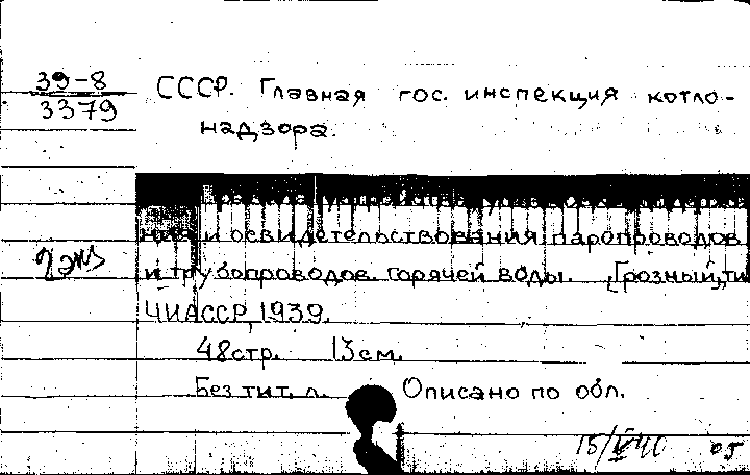 39-8
3379
СССР. Главная гос. инспекция котло-
надзора.
ния и освидетельствования паропроводов
и трубопроводов горячей воды. [Грозный], ти
ЧИАССР, 1939.
48 стр. 13 см.
Без тит. л. Описано по обл.
15/V 40 05